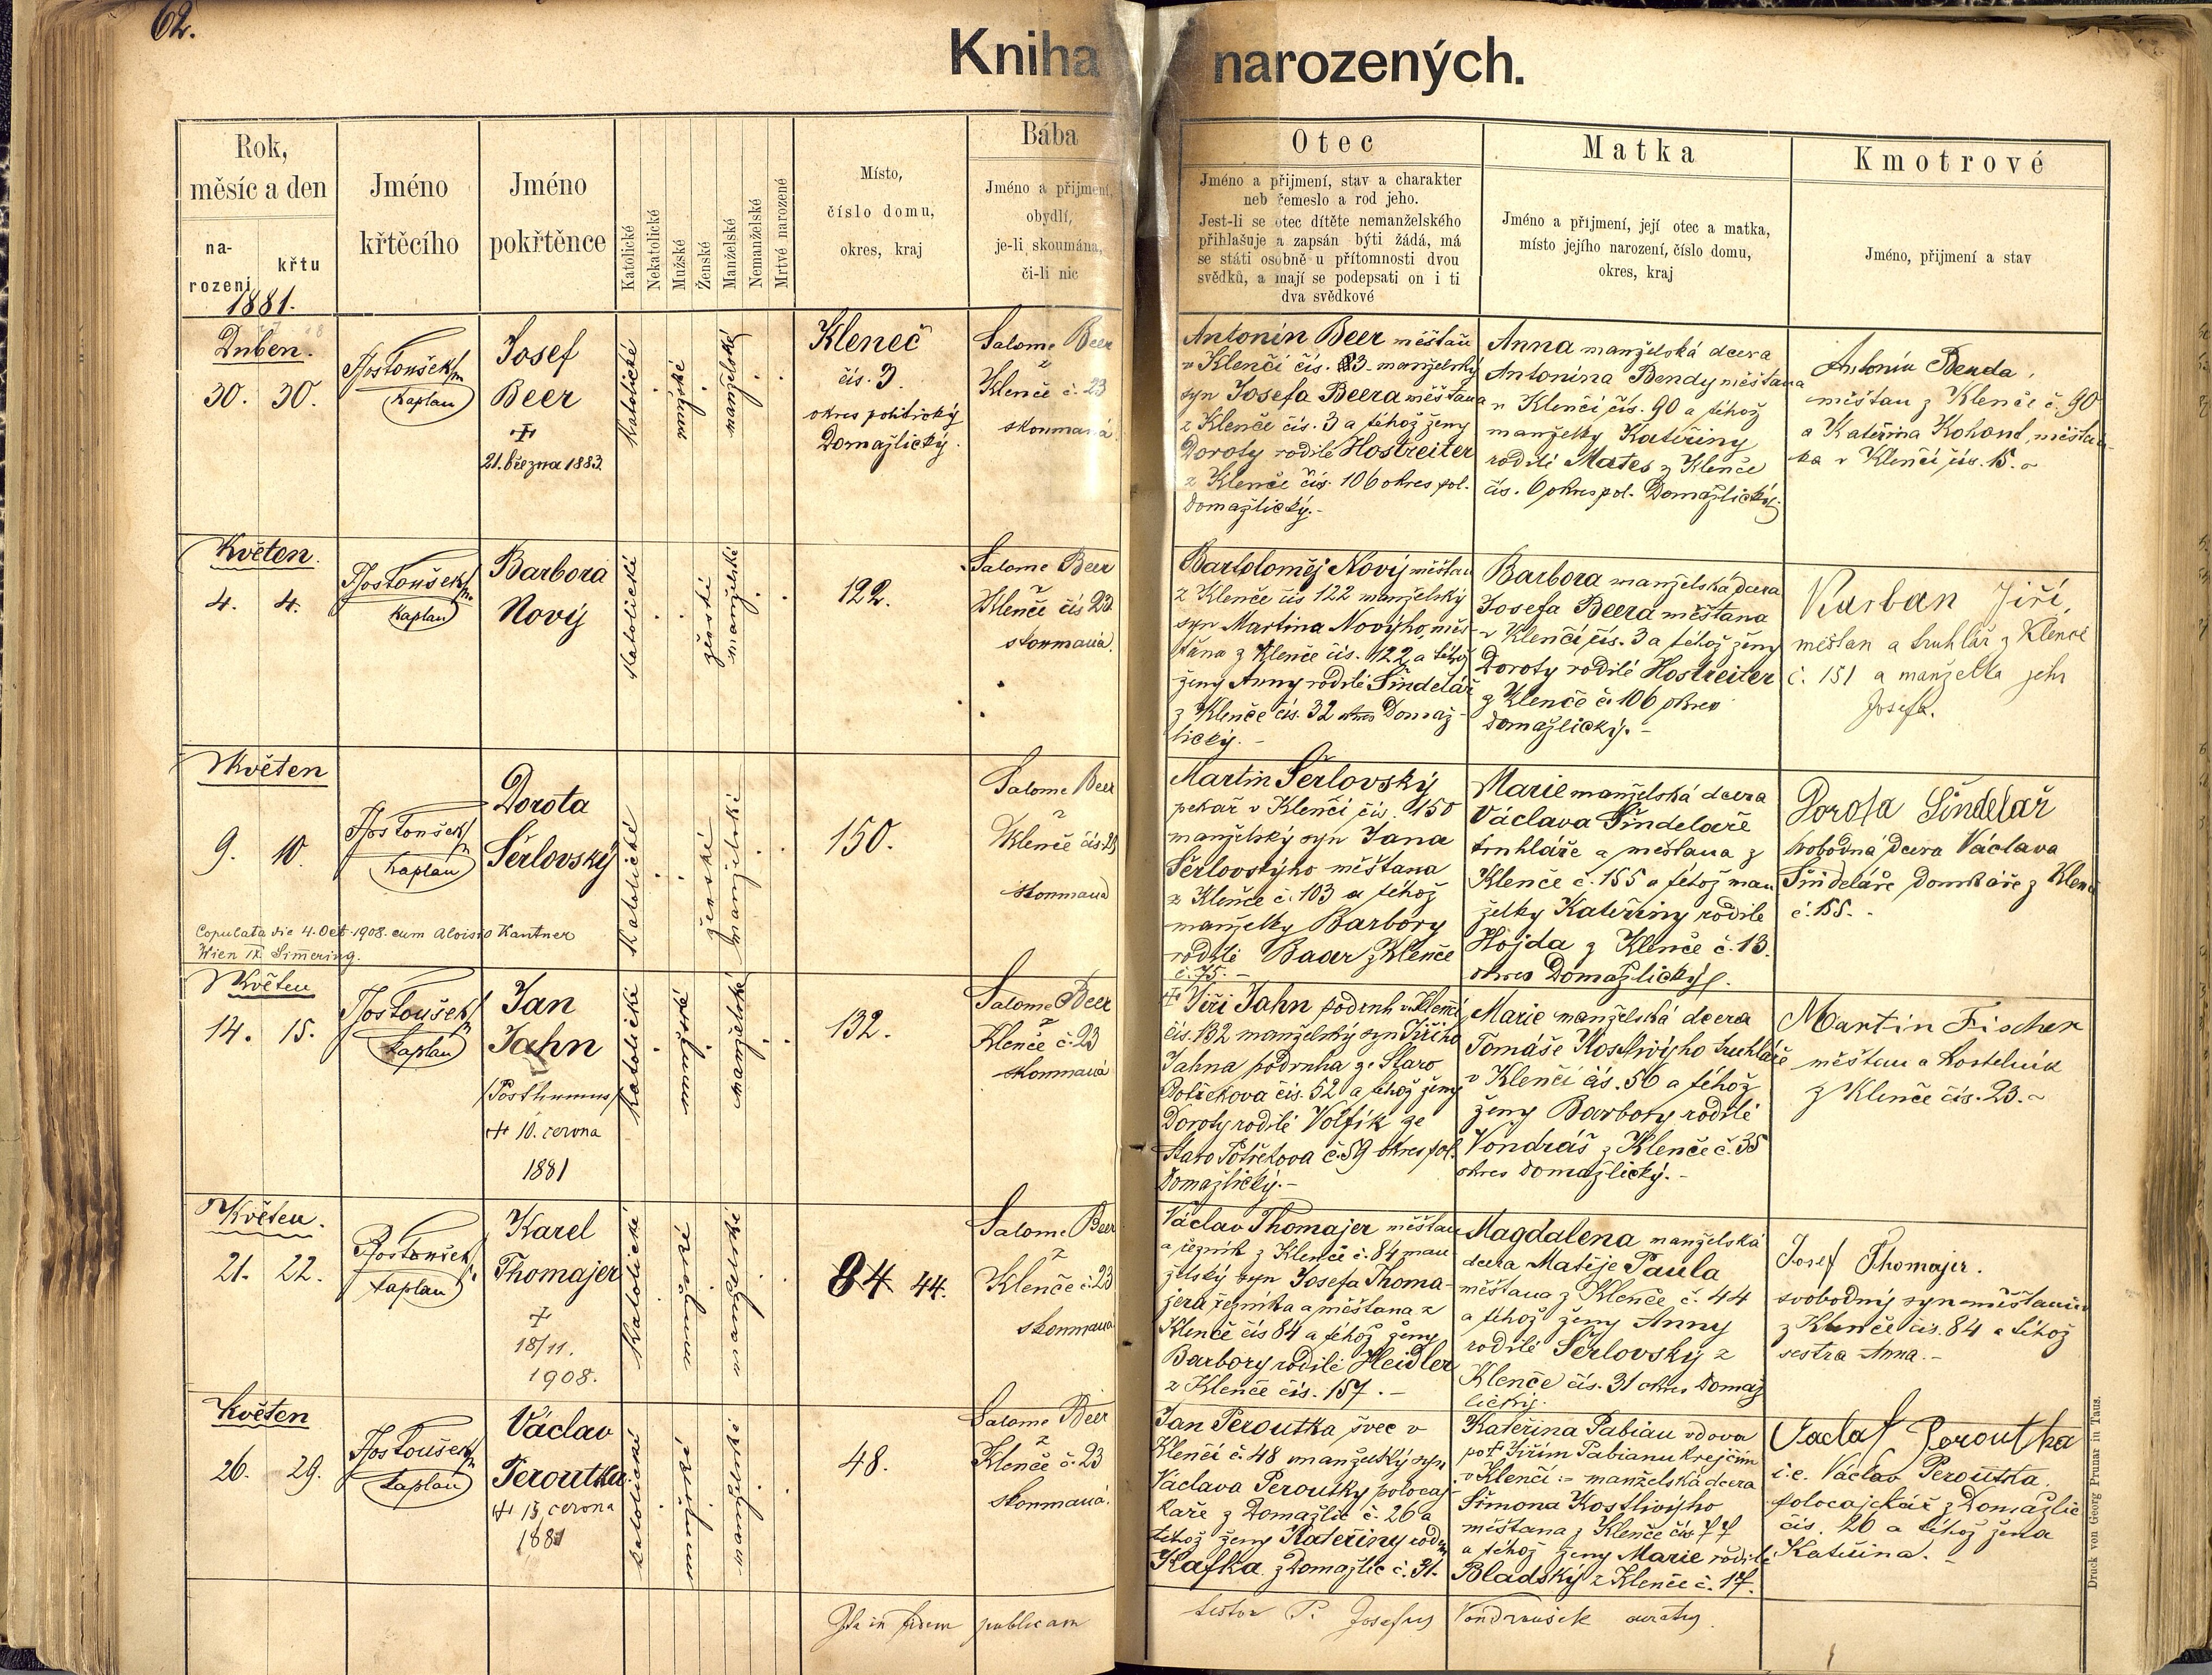 62.
Kniha narozených.
Rok,
měsíc a den
na-
rození
křtu
1881.
Jméno
křtěcího
Jméno
pokřtěnce
Katolické
Nekatolické
Mužské
Ženské
Manželské
Nemanželské
Mrtvé narozené
Místo,
číslo domu,
okres, kraj
Bába
Jméno a přijmení,
obydlí,
je-li skoumána,
či-li nic
Otec
Jméno a přijmení, stav a charakter
neb řemeslo a rod jeho.
Jest-li se otec dítěte nemanželského
přihlašuje a zapsán býti žádá, má
se státi osobně u přítomnosti dvou
svědků, a mají se podepsati on i ti
dva svědkové
Matka
Jméno a přijmení, její otec a matka,
místo jejího narození, číslo domu,
okres, kraj
Kmotrové
Jméno, přijmení a stav
Duben.
30. 30.
Kaplan
Josef
Beer
21. března 1883.
Katolické
mužské
manželské
Kleneč
čís. 3.
okres politický
Domažlický.
Salome Beer
z
Klenče č. 23
skoumaná
Antonín Beer měšťan
v Klenčí čís. 3 manželský
syn Josefa Beera měšťana
z Klenče čís. 3 a téhož ženy
Doroty rodilé Hostreiter
z Klenče čís. 106 okres pol.
Domažlický.-
Anna manželská dcera
Antonína Bendy měšťana
v Klenčí čís. 90 a téhož
manželky Kateřiny
rodilé Mates z Klenče
čís. 6 okres pol. Domažlický.
Antonín Benda,
měšťan z Klenče č. 90
a Kateřina Kohout, měšťan-
ka v Klenčí čís. 15.
Květen.
4. 4.
Kaplan
Barbora
Nový
Katolické
ženské
manželské
122.
Salome Beer
z
Klenče čís 23
skoumaná.
Bartoloměj Nový měšťan
z Klenče čís 122 manželský
syn Martina Novýho, měš-
ťana z Klenče čís. 122 a téhož
ženy Anny rodilé Šindelář
z Klenče čís. 32 okres Domaž-
lický.-
Barbora manželská dcera
Josefa Beera měšťana
v Klenčí čís. 3 a téhož ženy
Doroty rodilé Hostreiter
z Klenče č. 106 okres
Domažlický.-
Karban Jiří,
měšťan a truhlář z Klenče
č. 151 a manželka jeho
Josefa.
Květen
9. 10.
Kaplan
Dorota
Šerlovský
Copulata die 4. Oct. 1908. cum Aloisio Kantner
Wien Simering.
Katolické
ženské
manželské
150.
Salome Beer
z
Klenče čís. 23
skoumaná
Martin Šerlovský
pekař v Klenčí čís. 150
manželský syn Jana
Šerlovskýho měšťana
z Klenče č. 103 a téhož
manželky Barbory
rodilé Baar z Klenče
č. 75.-
Marie manželská dcera
Václava Šindeláře
truhláře a měšťana z
Klenče č. 155 a téhož man
želky Kateřiny rodilé
Hojda z Klenče č. 13.
okres Domažlický.
Dorota Šindelář
svobodná dcera Václava
Šindeláře domkáře z Klenče
č. 155.
Květen
14. 15.
Kaplan
Jan
Jahn
/Posthumus/
10. června
1881
Katolické
mužské
manželské
132.
Salome Beer
z
Klenče č. 23
skoumaná
Jiří Jahn podruh v Klenčí
čís. 132 manželský syn Jiřího
Jahna podruha ze Staro
Postřekova čís. 52 a téhož ženy
Doroty rodilé Volfík ze
Staro Postřekova č. 59 okres pol.
Domažlický.-
Marie manželská dcera
Tomáše Kostlivýho truhláře
v Klenčí čís. 56 a téhož
ženy Barbory rodilé
Vondráš z Klenče č. 35
okres Domažlický.-
Martin Fischer
měšťan a kostelník
z Klenče čís. 23.
Květen.
21. 22.
kaplan
Karel
Thomajer
18/11.
1908.
Katolické
mužské
manželské
84 44.
Salome Beer
z
Klenče č. 23
skoumaná
Václav Thomajer měšťan
a řezník z Klenče č. 84 man
želský syn Josefa Thoma-
jera řezníka a měšťana z
Klenče čís 84 a téhož ženy
Barbory rodilé Heidler
z Klenče čís. 157.-
Magdalena manželská
dcera Matěje Paula
měšťana z Klenče č. 44
a téhož ženy Anny
rodilé Šerlovský z
Klenče čís. 31 okres Domaž
lický.
Josef Thomajer.
svobodný syn měšťanův
z Klenče čís. 84 a téhož
sestra Anna.-
Květen
26. 29.
kaplan
Václav
Peroutka
13. června
1881
katolické
mužské
manželské
48.
Salome Beer
z
Klenče č. 23
skoumaná.
Jan Peroutka švec v
Klenčí č. 48 manželský syn
Václava Peroutky polocaj-
kaře z Domažlic č. 26 a
téhož ženy Kateřiny rodu
Kafka z Domažlic č. 31.
Kateřina Pabian vdova
po Jiřím Pabianu krejčím
v Klenčí - manželská dcera
Šimona Kostlivýho
měšťana z Klenče čís 77
a téhož ženy Marie rodilé
Bladský z Klenče č. 17.
Vaclaf Peroutka
i.e. Václav Peroutka,
polocajckář z Domažlic
čís. 26 a téhož žena
Kateřina.-
Ita in fidem publicam
testor P. Josefus Vondraušek curatus
Druck von Georg Prunar in Taus.